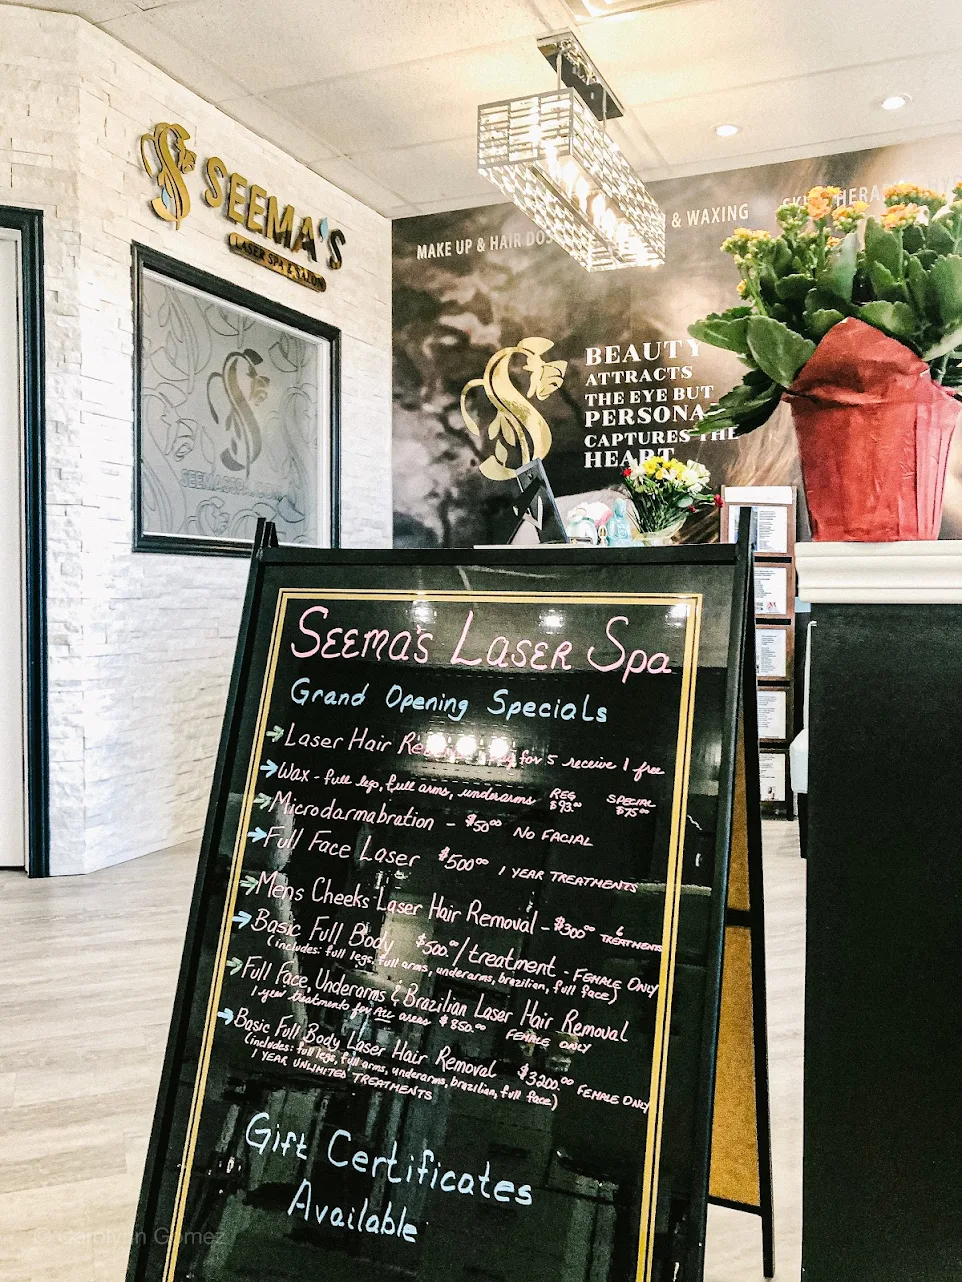 SEEMA'S
LASER SPA & SALON
MAKE UP & HAIR DO'S
& WAXING
BEAUTY
ATTRACTS
THE EYE BUT
PERSONA
CAPTURES THE
HEART
SEEMASSPA.COM
SEEMA'S LASER SPA
Grand Opening Specials
→Laser Hair for 5 receive 1 free
→Wax - full leg, full arms, underarms REG $93.00 SPECIAL $75.00
→Microdarmabration - $50.00 NO FACIAL
→Full Face Laser $500.00 1 YEAR TREATMENTS
→Mens Cheeks Laser Hair Removal - $300.00 6 TREATMENTS
→Basic Full Body $500.00/treatment - FEMALE ONLY
(includes: full legs, full arms, underarms, brazilian, full face)
→Full Face, Underarms & Brazilian Laser Hair Removal
1 year treatments for ALL areas $850.00 FEMALE ONLY
→Basic Full Body Laser Hair Removal $3200.00 FEMALE ONLY
(includes: full legs, full arms, underarms, brazilian, full face)
1 YEAR UNLIMITED TREATMENTS
Gift Certificates
Available
© Carolyann Gomez